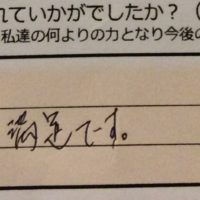 れていかがでしたか？（
私達の何よりの力となり今後の
満足です。